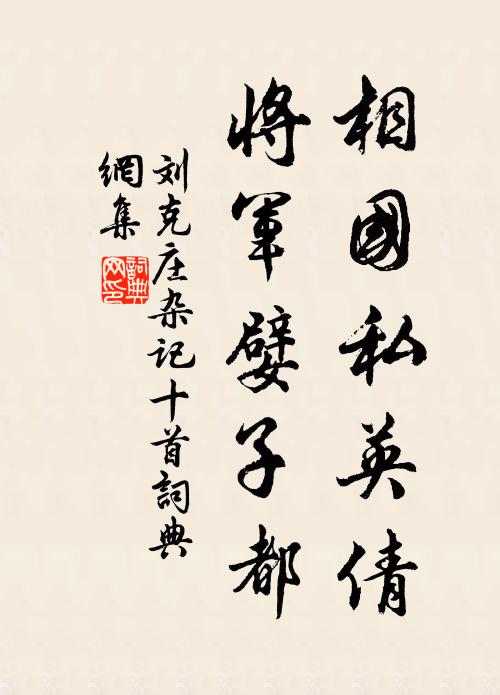 相國私英倩
將軍嬖子都
刘克庄杂记十首詞典
網集
詞典網印